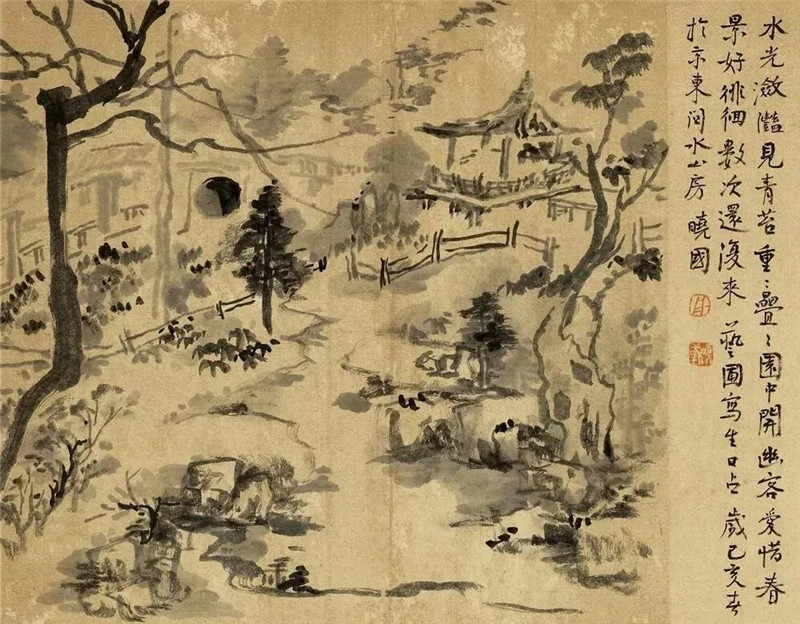 水光瀲灩見青苔重〻疊〻園中開幽客愛惜春
景好徘徊數次還復來藝圃寫生口占歲己亥春
於京東問水山房曉國